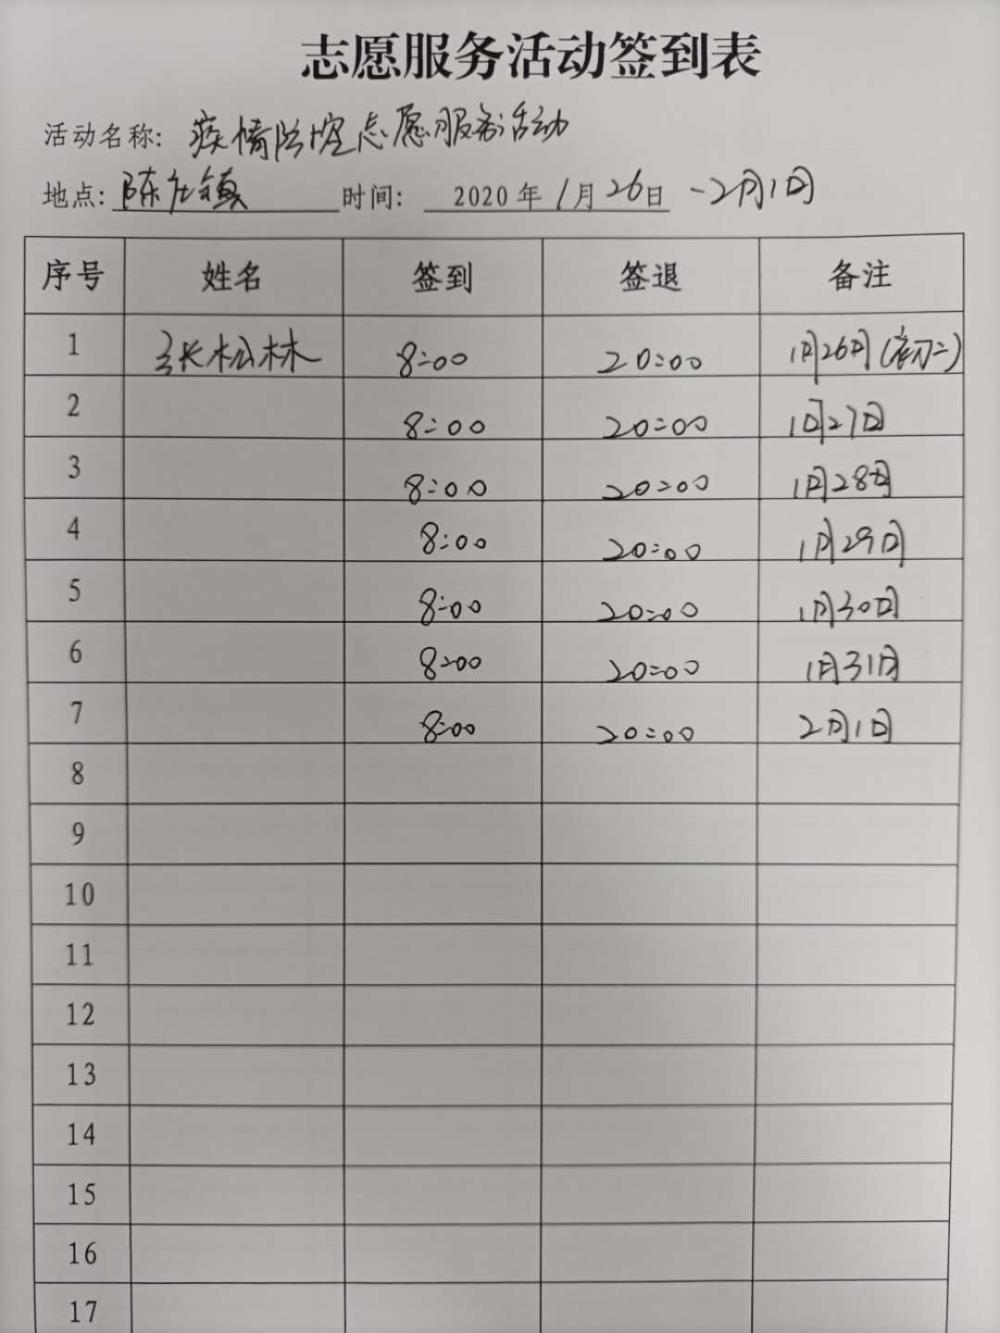 志愿服务活动签到表
活动名称: 疾情防控志愿服务活动
地点: 陈庄镇 时间: 2020年1月26日-2月1日
序号 姓名 签到 签退 备注
1 张松林 8:00 20:00 1月26日(初二)
2 8:00 20:00 1月27日
3 8:00 20:00 1月28日
4 8:00 20:00 1月29日
5 8:00 20:00 1月30日
6 8:00 20:00 1月31日
7 8:00 20:00 2月1日
8
9
10
11
12
13
14
15
16
17